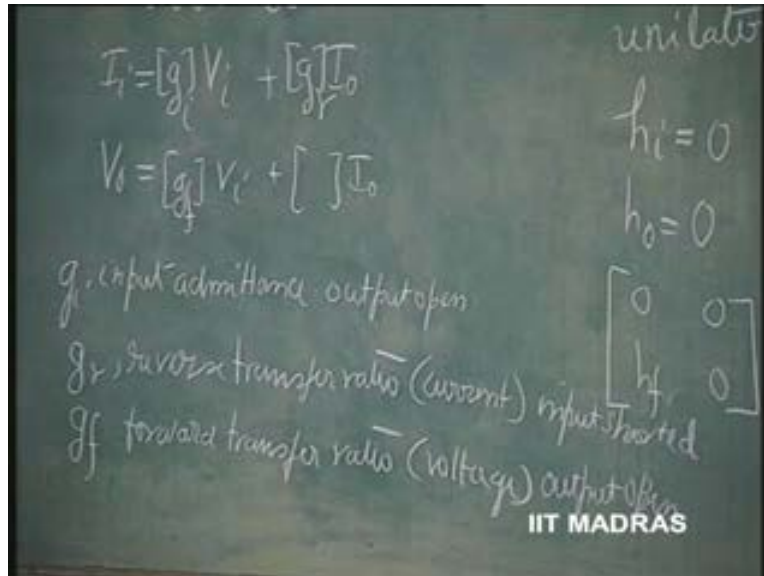 I_i = [g_i] V_i + [g_r] I_o
V_o = [g_f] V_i + [ ] I_o
g_i, input admittance output open
g_r, reverse transfer ratio (current) input shorted
g_f forward transfer ratio (voltage) output open
unilate
h_i = 0
h_o = 0
[0 0
h_f 0]
IIT MADRAS